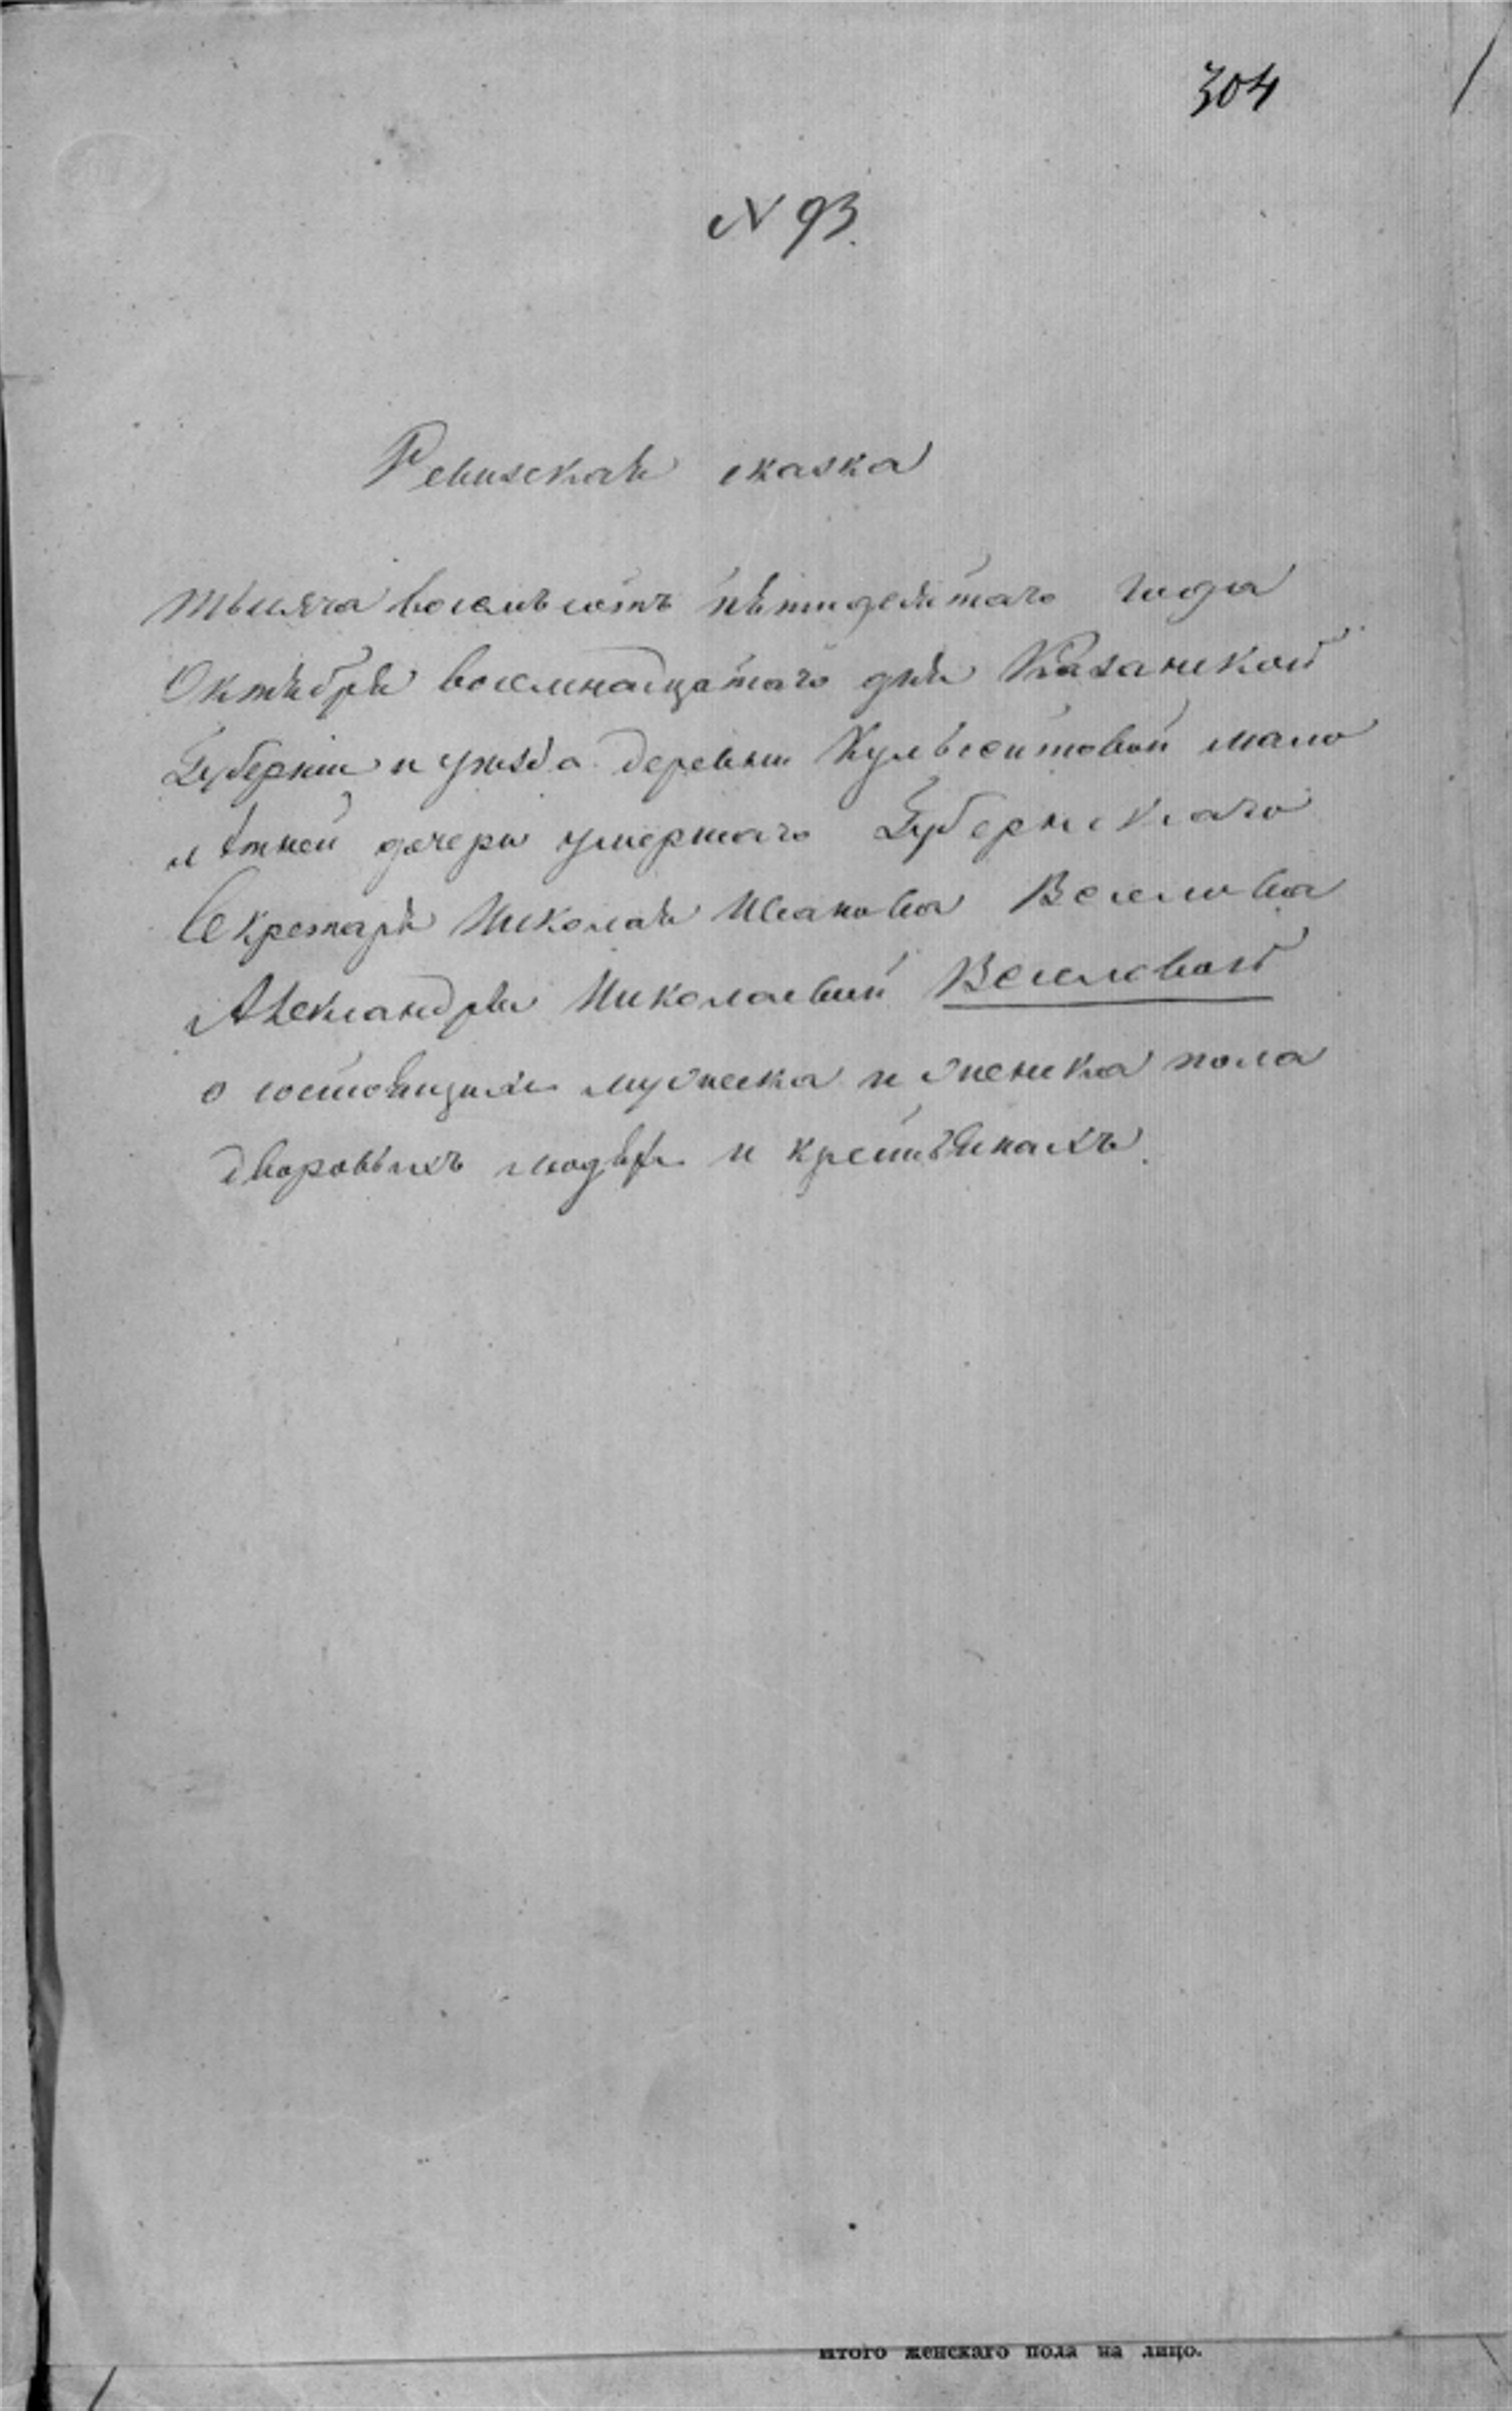 304
N 93.
Ревизская сказка
тысяча восемьсотъ пятидесятаго года
Октября восемнадцатаго дня Казанской
Губерніи и уѣзда деревни Кульсеитовой мало
лѣтней дочери умершаго Губернскаго
Секретаря Николая Иванова Веселова
Александры Николаевой Веселовой
о состоящихъ мужеска и женска пола
дворовыхъ людѣхъ и крестьянахъ.
итого женскаго пола на лицо.